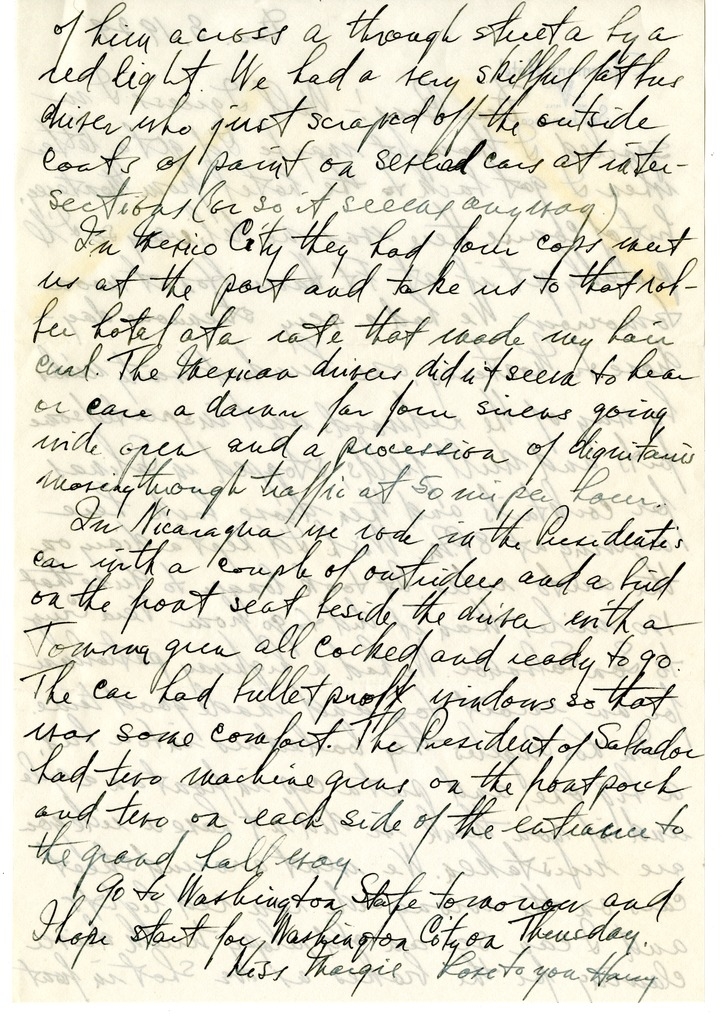 of him across a through street a by a
red light. We had a very skillful fat bus
driver who just scraped off the outside
coats of paint on several cars at inter-
sections (or so it seems anyway.)
In Mexico City they had four cops meet
us at the port and take us to that rob-
ber hotel at a rate that made my hair
curl. The Mexican drivers didn't seem to hear
or care a damn for four sirens going
wide open and a procession of dignitaries
moving through traffic at 50 mi per hour.
In Nicaragua we rode in the President's
car with a couple of outriders and a bird
on the front seat beside the driver with a
Tommy gun all cocked and ready to go.
The car had bullet proof windows so that
was some comfort. The President of Salvador
had two machine guns on the front porch
and two on each side of the entrance to
the grand hall way.
Go to Washington State tomorrow and
I hope start for Washington City on Thursday.
Kiss Margie Love to you Harry